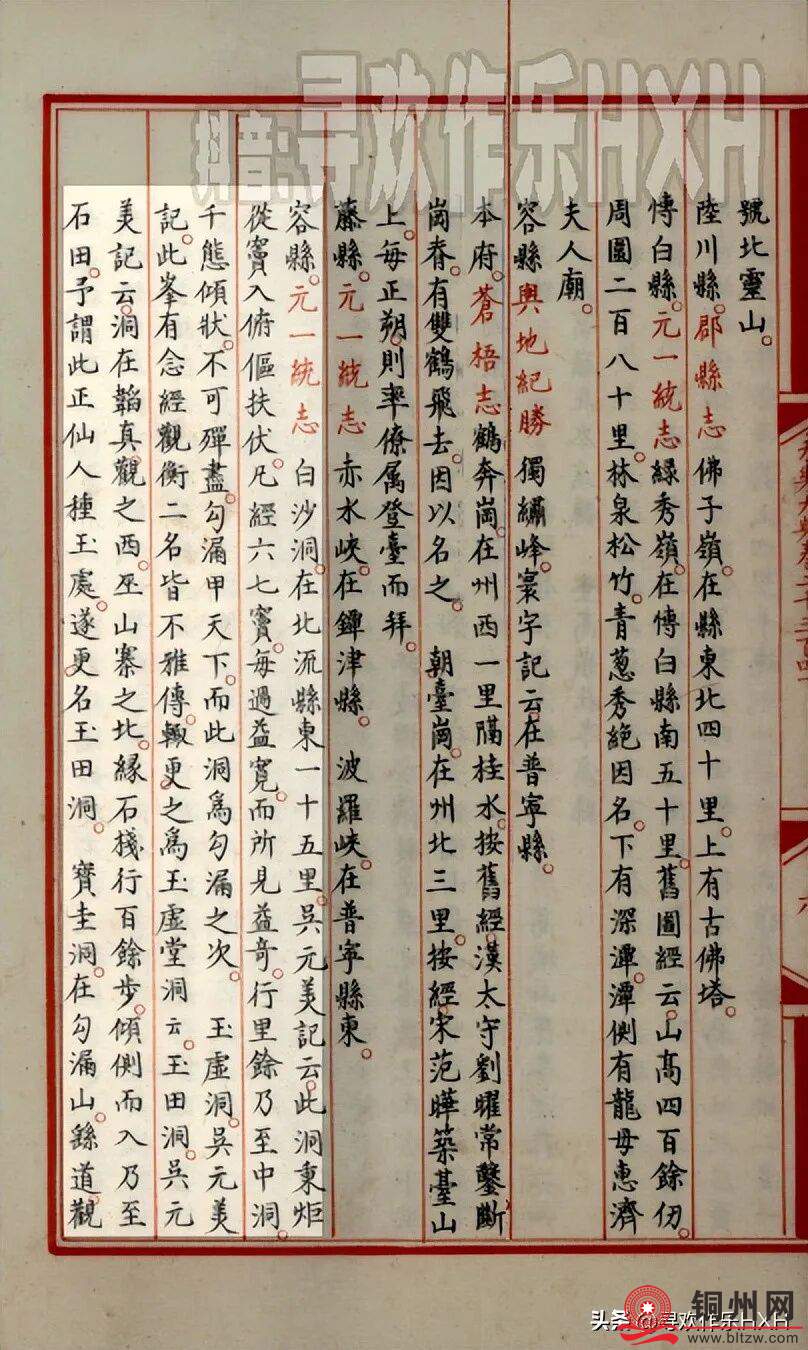 抖音:寻欢作乐HXH
號北靈山。
陸川縣。郡縣志佛子嶺。在縣東北四十里。上有古佛塔。
博白縣。元一統志緑秀嶺。在博白縣南五十里。舊圖經云。山髙四百餘仞。
周圍二百八十里。林泉松竹。青葱秀絶因名。下有深潭。潭側有龍母惠濟
夫人廟。
容縣輿地紀勝獨繡峰。寰宇記云。在普寧縣。
本府。蒼梧志鶴奔崗。在州西一里隔桂水。按舊經。漢太守劉曜常鑿斷
崗脊。有雙鶴飛去。因以名之。 朝臺崗。在州北三里。按經。宋范曄築臺山
上。每正朔。則率僚属登臺而拜。
藤縣。元一統志 赤水峽。在鐔津縣。 波羅峽。在普寧縣東。
容縣。元一統志 白沙洞。在北流縣東一十五里。吳元美記云。此洞秉炬
從竇入俯傴扶伏。凡經六七竇。每過益寛。而所見益奇。行里餘乃至中洞。
千態傾狀。不可殫盡。勾漏甲天下。而此洞爲勾漏之次。 玉虚洞。吳元美
記。此峯有念經觀衡二名皆不雅傳。輙更之爲玉虚堂洞云。玉田洞。吳元
美記云。洞在韜真觀之西。巫山寨之北。縁石棧行百餘步。傾側而入乃至
石田。予謂此正仙人種玉處。遂更名玉田洞。 寶圭洞。在勾漏山。繇道觀
六
铜州网
www.bltzw.com
头条 @寻欢作乐HXH